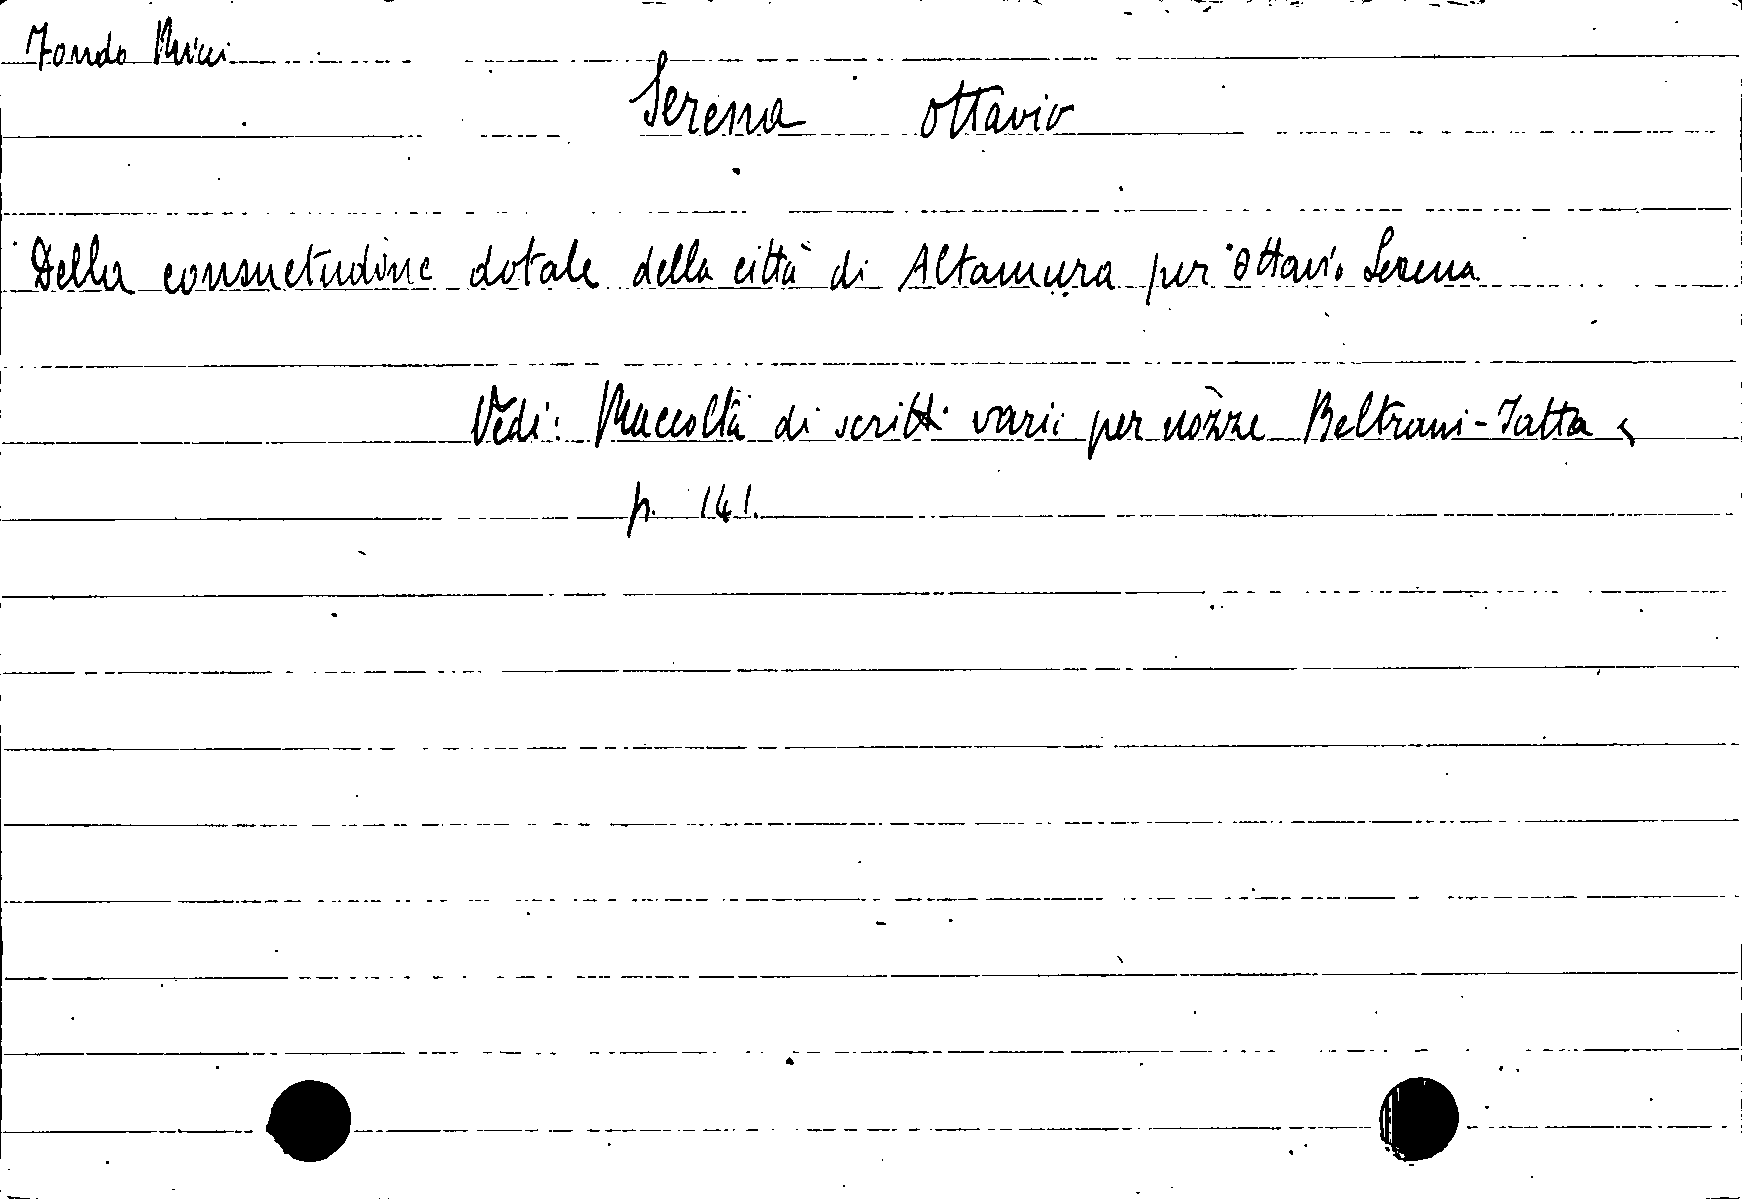 Fondo Ricci
Serena Ottavio
Della consuetudine dotale della città di Altamura per Ottavio Serena
Vedi: Raccolta di scritti varii per nozze Beltrani-Jatta
p. 141.